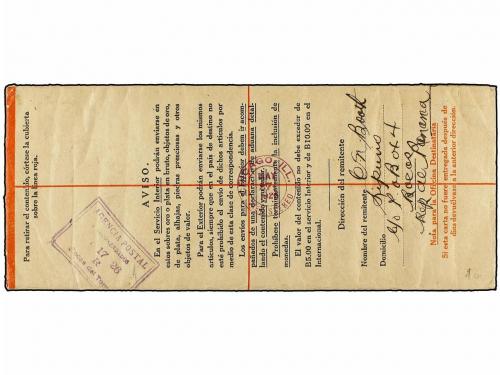 Para retirar el contenido, córtese la cubierta
sobre la línea roja.
AVISO.
En el Servicio Interior podrán enviarse en
estos sobres oro o platino en bruto, objetos de oro,
de plata, alhajas, piedras preciosas y otros
objetos de valor.
Para el Exterior podrán enviarse los mismos
artículos, siempre que en el país de destino no
esté prohibido el envío de dichos artículos por
medio de esta clase de correspondencia.
Los envíos para el Exterior deben ir acom-
pañados de una declaración de aduana detal-
lando el contenido
Prohíbese terminantemente la inclusión de
monedas.
El valor del contenido no debe exceder de
B5.00 en el servicio Interior y de B10.00 en el
Internacional.
Dirección del remitente
Nombre del remitente
Domicilio
c/o P.O. Box 44
Bocas
Rep de Panama
Nota para la Oficina Destinataria
Si esta carta no fuere entregada después de
días devuélvasela a la anterior dirección.
AGENCIA POSTAL
17 26